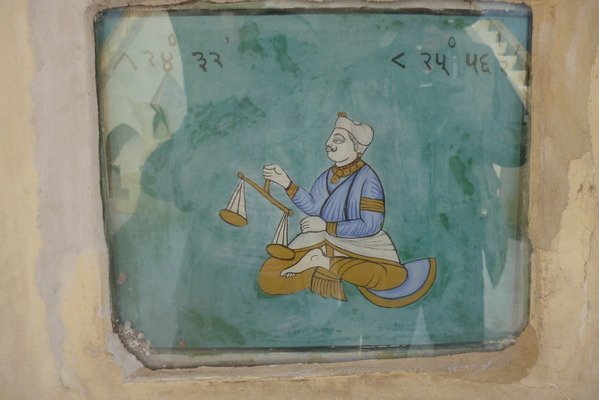 ∧ २४° ३२' < २५° ५६